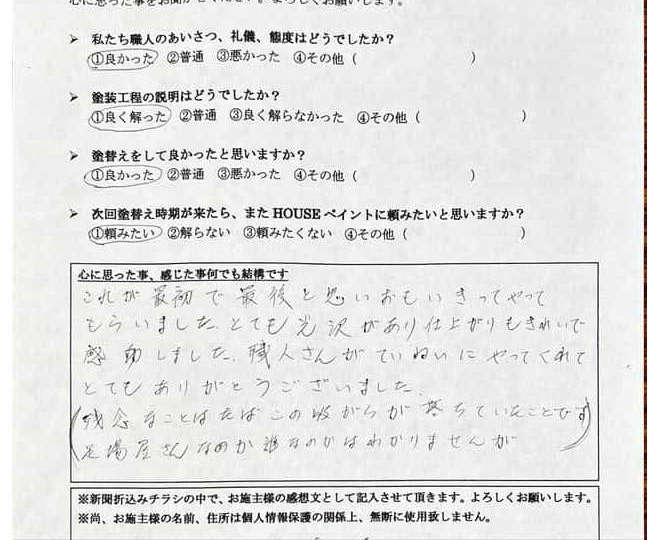 ➢ 私たち職人のあいさつ、礼儀、態度はどうでしたか？
①良かった ②普通 ③悪かった ④その他（ ）
➢ 塗装工程の説明はどうでしたか？
①良く解った ②普通 ③良く解らなかった ④その他（ ）
➢ 塗替えをして良かったと思いますか？
①良かった ②普通 ③悪かった ④その他（ ）
➢ 次回塗替え時期が来たら、また HOUSE ペイントに頼みたいと思いますか？
①頼みたい ②解らない ③頼みたくない ④その他（ ）
心に思った事、感じた事何でも結構です
これが最初で最後と思いおもいきってやって
もらいました。とても光沢があり仕上がりもきれいで
感動しました。職人さんがていねいにやってくれて
とてもありがとうございました。
(残念なことはたばこの吸がらが落ちていたことです
足場屋さんなのか誰なのかはわかりませんが)
※新聞折込みチラシの中で、お施主様の感想文として記入させて頂きます。よろしくお願いします。
※尚、お施主様の名前、住所は個人情報保護の関係上、無断に使用致しません。